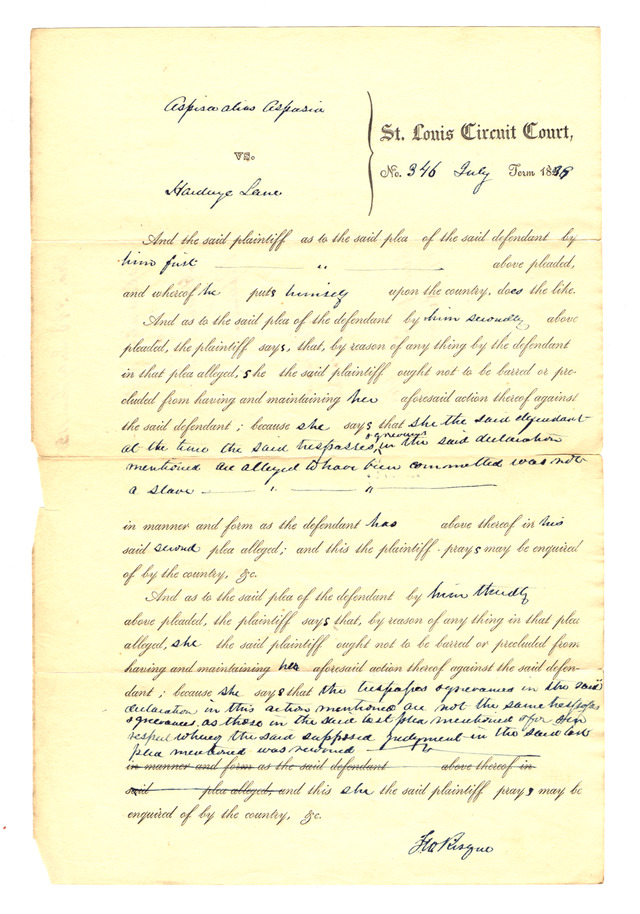 Aspisa alias Aspasia
vs.
Hardage Lane
St. Louis Circuit Court,
No. 346 July Term 1839
And the said plaintiff as to the said plea of the said defendant by
him first — " — above pleaded,
and whereof he puts himself upon the country, does the like.
And as to the said plea of the defendant by him secondly above
pleaded, the plaintiff says, that, by reason of any thing by the defendant
in that plea alleged, she the said plaintiff ought not to be barred or pre-
cluded from having and maintaining her aforesaid action thereof against
the said defendant; because she says that she the said defendant
at the time the said trespasses, & grievances in the said declaration
mentioned are alleged to have been committed was not
a slave — " — "
in manner and form as the defendant has above thereof in his
said second plea alleged; and this the plaintiff prays may be enquired
of by the country, &c.
And as to the said plea of the defendant by him thirdly
above pleaded, the plaintiff says that, by reason of any thing in that plea
alleged, she the said plaintiff ought not to be barred or precluded from
having and maintaining her aforesaid action thereof against the said defen-
dant; because she says that the trespasses & grievances in the said
declaration in this action mentioned are not the same trespasses
& grievances as those in the said last plea mentioned & for & in
respect whereof the said supposed judgment in the said last
plea mentioned was recovered —
in manner and form as the said defendant above thereof in
said plea alleged, and this she the said plaintiff prays may be
enquired of by the country, &c.
F W Risque